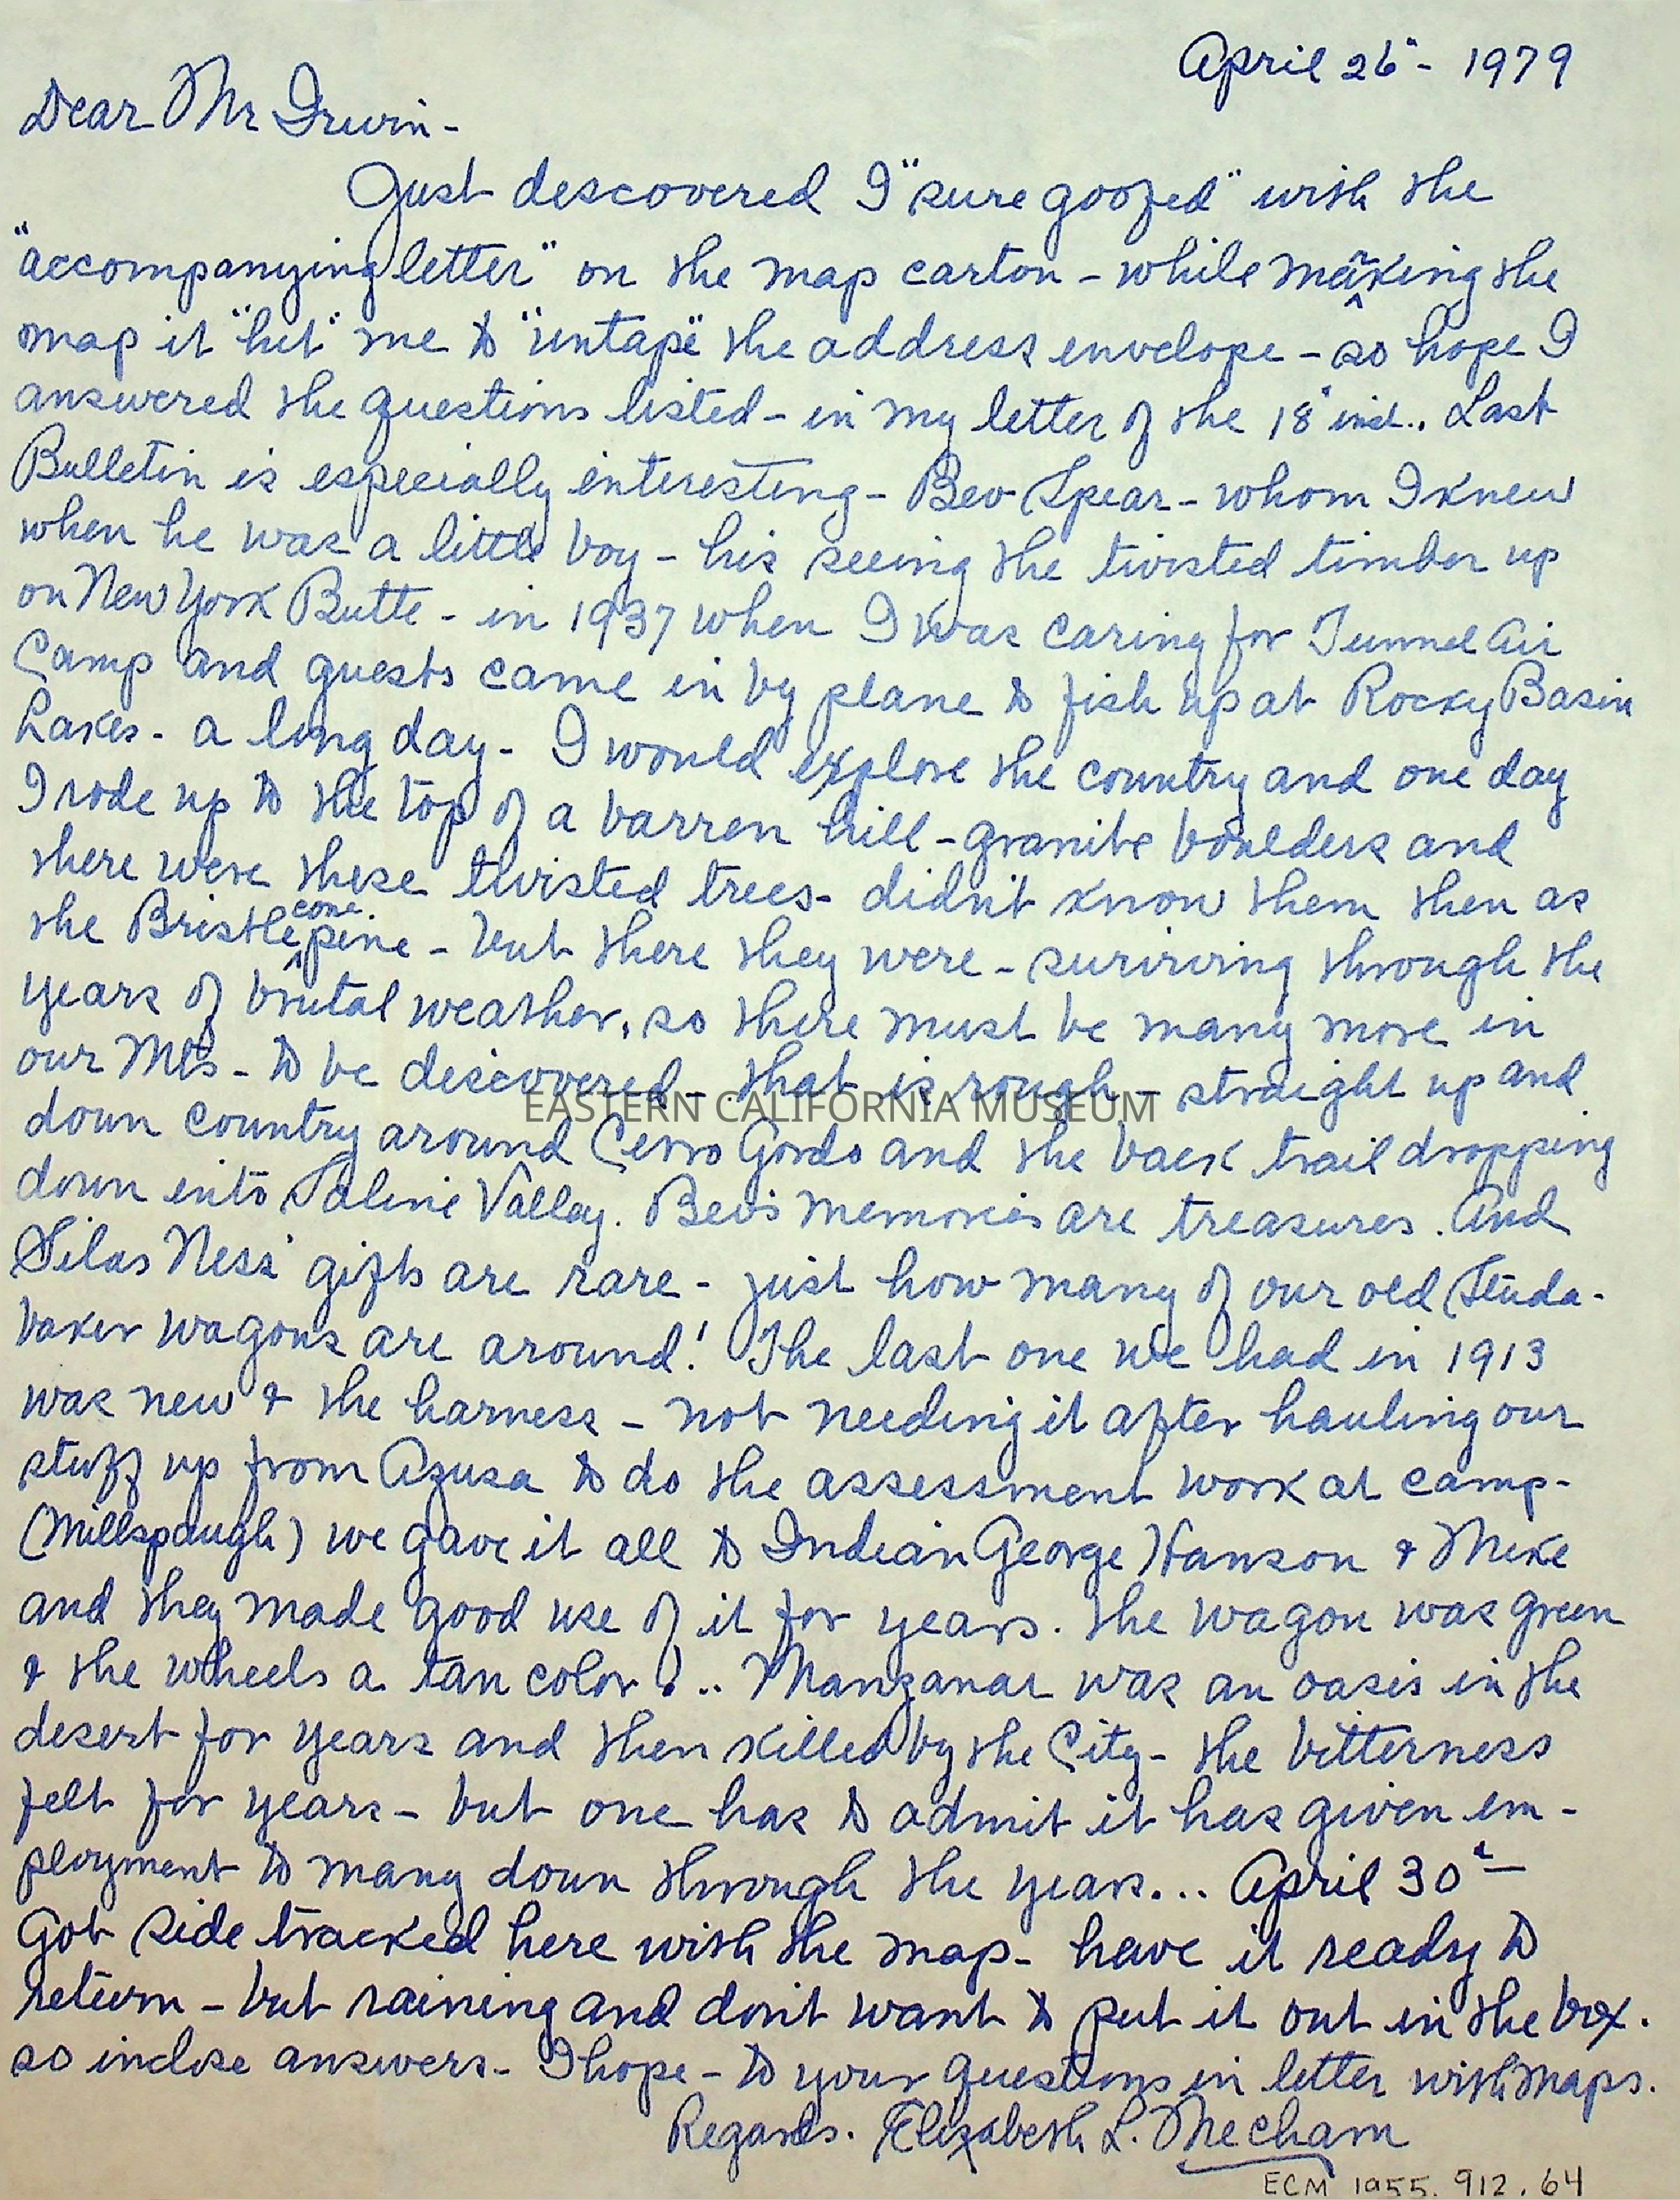 April 26" - 1979
Dear Mr Irwin -
Just descovered I "sure goofed" with the
"accompanying letter" on the map carton - while making the
map it "hit" me to "untape" the address envelope - so hope I
answered the questions listed - in my letter of the 18" inst.. Last
Bulletin is especially interesting - Bev Spear - whom I knew
when he was a little boy - his seeing the twisted timber up
on New York Butte - in 1937 when I was caring for Tunnel Air
Camp and guests came in by plane to fish up at Rocky Basin
Lakes - a long day - I would explore the country and one day
I rode up to the top of a barren hill - granite boulders and
there were these twisted trees - didn't know them then as
the Bristlecone pine - but there they were - surviving through the
years of brutal weather, so there must be many more in
our Mts - to be discovered - that is rough - straight up and
EASTERN CALIFORNIA MUSEUM
down country around Cerro Gordo and the back trail dropping
down into Saline Valley. Bev's memories are treasures. And
Silas Ness' gifts are rare - just how many of our old Studa-
baker wagons are around! The last one we had in 1913
was new & the harness - not needing it after hauling our
stuff up from Azusa to do the assessment work at camp -
(Millspaugh) we gave it all to Indian George Hanson & Mike
and they made good use of it for years. The wagon was green
& the wheels a tan color!.. Manzanar was an oasis in the
desert for years and then killed by the City - the bitterness
felt for years - but one has to admit it has given em-
ployment to many down through the years... April 30th
Got side tracked here with the map - have it ready to
return - but raining and don't want to put it out in the box.
so inclose answers - I hope - to your questions in letter with maps.
Regards. Elizabeth L. Mecham
ECM 1955.912.64